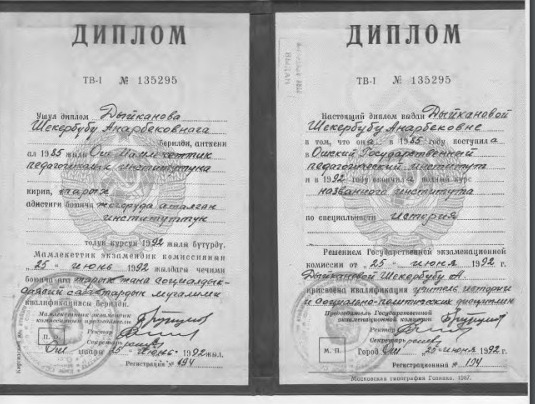 ДИПЛОМ
ТВ-I № 135295
Ушул диплом Дыйканова
Шекербубу Анарбековнага
берилди, анткени
ал 1985 жылы Ош Мамлекеттик
педагогикалык институтуна
кирип, тарых
адистиги боюнча жогоруда аталган
институттун
толук курсун 1992 жылы бүтүрдү.
Мамлекеттик экзамендик комиссиянын
"25" июнь 1992 жылдагы чечими
боюнча ага тарых жана социалдык-
саясый сабактардын мугалими
квалификациясы берилди.
Мамлекеттик экзамендик
комиссиянын председатели
Ректор
Секретарь
М. О.
Ош шаары 25 июнь 1992 жыл.
Регистрация № 194
ДИПЛОМ
ТВ-I № 135295
Настоящий диплом выдан Дыйкановой
Шекербубу Анарбековне
в том, что она в 1985 году поступила
в Ошский Государственный
педагогический институт
и в 1992 году окончила полный курс
названного института
по специальности история
Решением Государственной экзаменационной
комиссии от "25" июня 1992 г.
Дыйкановой Шекербубу А.
присвоена квалификация учитель истории
и социально-политических дисциплин
Председатель Государственной
экзаменационной комиссии
Ректор
Секретарь
М. П.
Город Ош 25 июня 1992 г.
Регистрационный № 194
Московская типография Гознака. 1987.